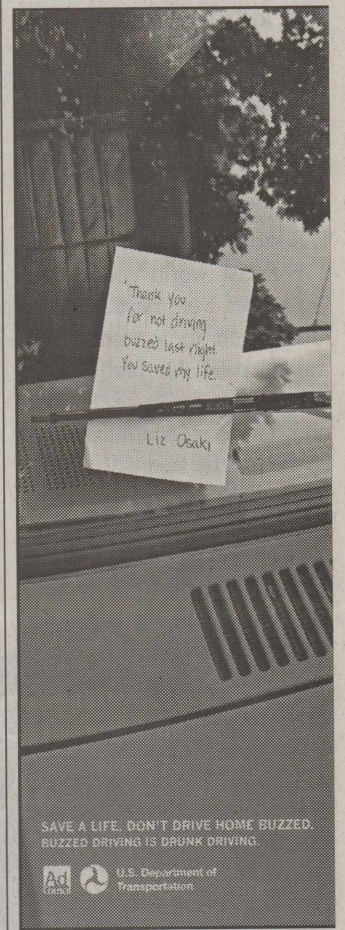 Thank you
for not driving
buzzed last night.
You saved my life.
Liz Osaki
SAVE A LIFE. DON'T DRIVE HOME BUZZED.
BUZZED DRIVING IS DRUNK DRIVING.
Ad
COUNCIL
U.S. Department of
Transportation